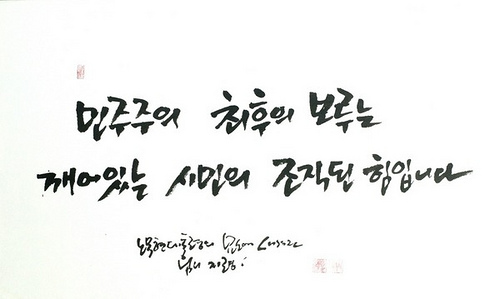 민주주의 최후의 보루는
깨어있는 시민의 조직된 힘입니다
노무현대통령의